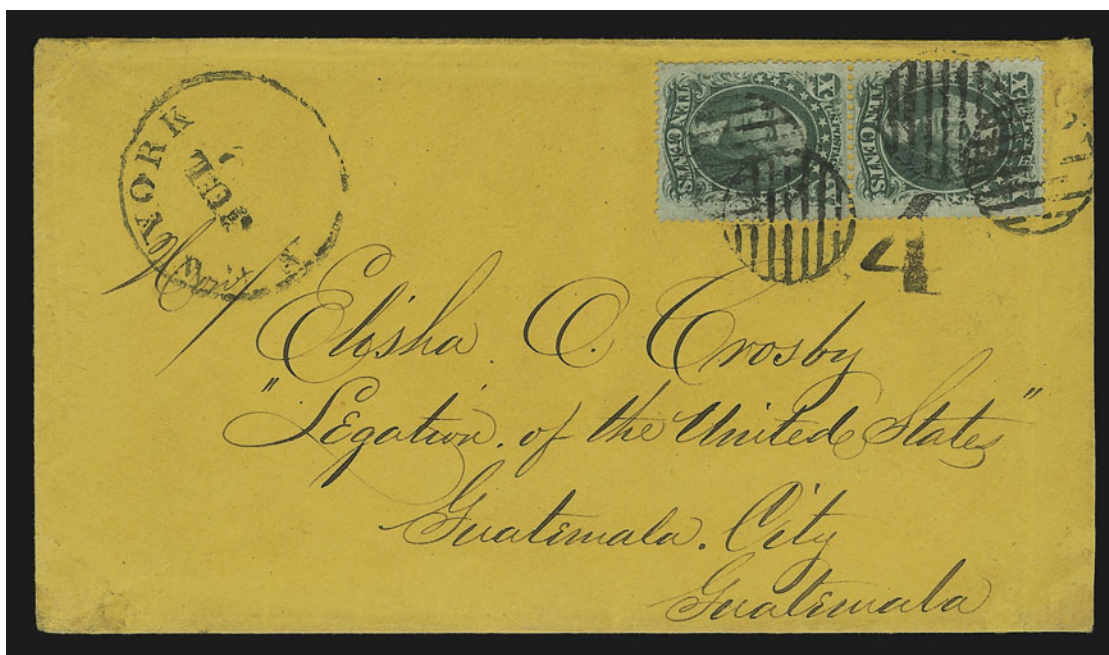 NEW YORK
JUL
TEN CENTS
X
TEN CENTS
X
4
Elisha. O. Crosby
"Legation. of the United States"
Guatimala. City
Guatimala